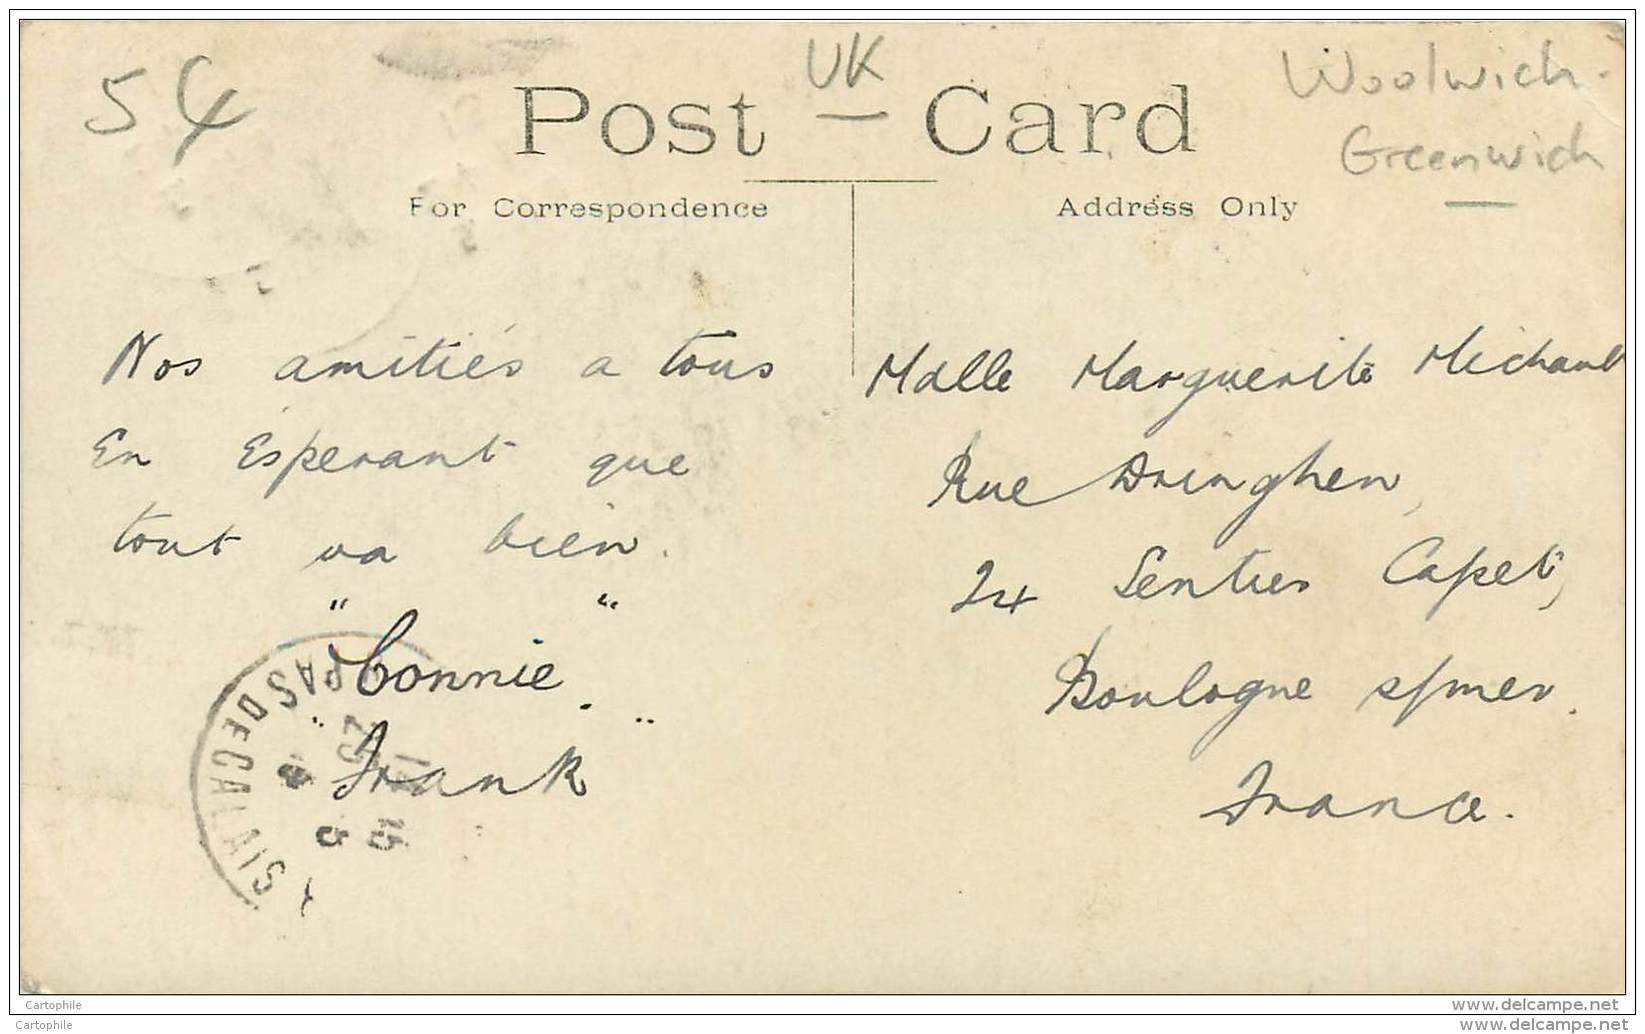 54
UK
Woolwich.
Greenwich
Post Card
For Correspondence
Address Only
Nos amitiés a tous
En Ésperant que
tout va bien.
"Connie."
"Frank"
Malle Marguerite Michault
Rue Dringhen,
24 Senties Capet,
Boulogne s/mer.
France.
PAS DE CALAIS
Cartophile
www.delcampe.net
Cartophile
www.delcampe.net